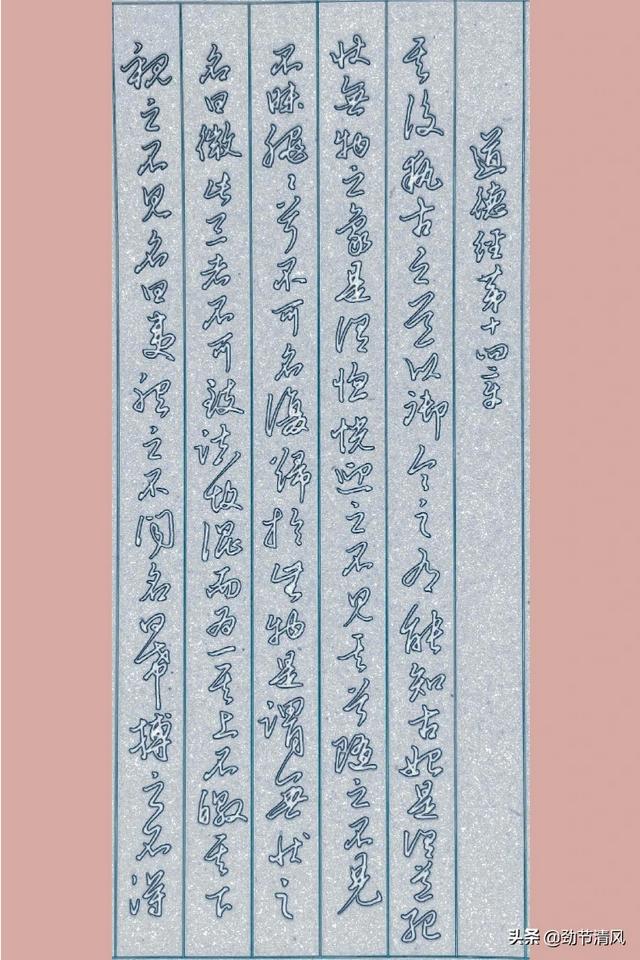 視之不見名曰夷聽之不聞名曰希搏之不得
名曰微此三者不可致詰故混而為一其上不皦其下
不昧繩〻兮不可名復歸於無物是謂無狀之
狀無物之象是謂惚恍迎之不見其首隨之不見
其後執古之道以御今之有能知古始是謂道紀
道德经第十四章
头条 @劲节清风